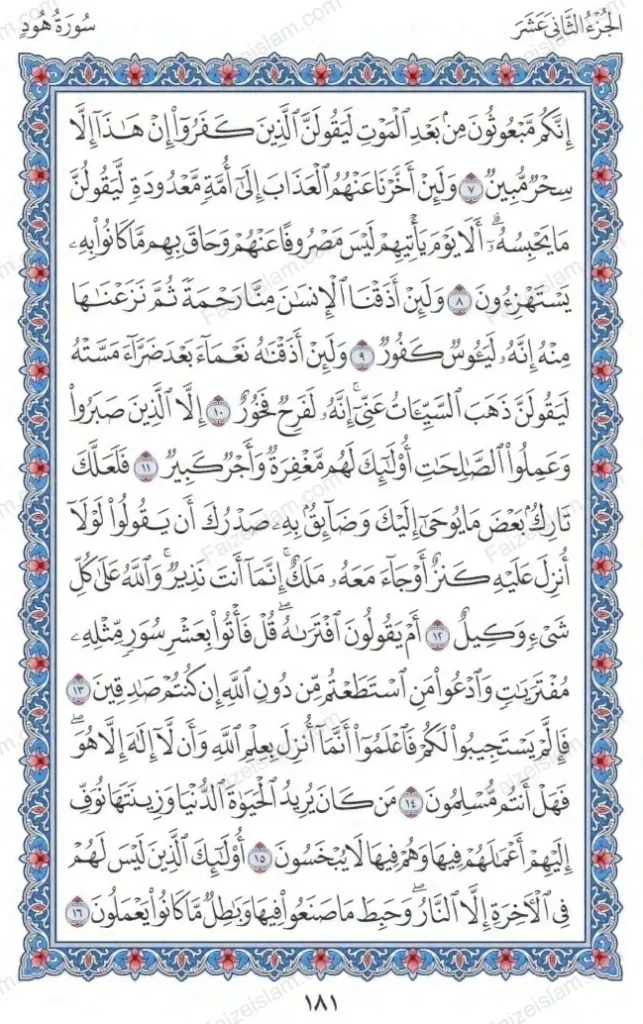 الجزء الثاني عشر
سورة هود
إِنَّكُم مَّبْعُوثُونَ مِنۢ بَعْدِ ٱلْمَوْتِ لَيَقُولَنَّ ٱلَّذِينَ كَفَرُوٓا۟ إِنْ هَـٰذَآ إِلَّا
سِحْرٌ مُّبِينٌ ٧ وَلَئِنْ أَخَّرْنَا عَنْهُمُ ٱلْعَذَابَ إِلَىٰٓ أُمَّةٍ مَّعْدُودَةٍ لَّيَقُولُنَّ
مَا يَحْبِسُهُۥٓ ۗ أَلَا يَوْمَ يَأْتِيهِمْ لَيْسَ مَصْرُوفًا عَنْهُمْ وَحَاقَ بِهِم مَّا كَانُوا۟ بِهِۦ
يَسْتَهْزِءُونَ ٨ وَلَئِنْ أَذَقْنَا ٱلْإِنسَـٰنَ مِنَّا رَحْمَةً ثُمَّ نَزَعْنَـٰهَا
مِنْهُ إِنَّهُۥ لَيَـُٔوسٌ كَفُورٌ ٩ وَلَئِنْ أَذَقْنَـٰهُ نَعْمَآءَ بَعْدَ ضَرَّآءَ مَسَّتْهُ
لَيَقُولَنَّ ذَهَبَ ٱلسَّيِّـَٔاتُ عَنِّىٓ ۚ إِنَّهُۥ لَفَرِحٌ فَخُورٌ ١٠ إِلَّا ٱلَّذِينَ صَبَرُوا۟
وَعَمِلُوا۟ ٱلصَّـٰلِحَـٰتِ أُو۟لَـٰٓئِكَ لَهُم مَّغْفِرَةٌ وَأَجْرٌ كَبِيرٌ ١١ فَلَعَلَّكَ
تَارِكٌۢ بَعْضَ مَا يُوحَىٰٓ إِلَيْكَ وَضَآئِقٌۢ بِهِۦ صَدْرُكَ أَن يَقُولُوا۟ لَوْلَآ
أُنزِلَ عَلَيْهِ كَنزٌ أَوْ جَآءَ مَعَهُۥ مَلَكٌ ۚ إِنَّمَآ أَنتَ نَذِيرٌ ۚ وَٱللَّهُ عَلَىٰ كُلِّ
شَىْءٍ وَكِيلٌ ١٢ أَمْ يَقُولُونَ ٱفْتَرَىٰهُ ۖ قُلْ فَأْتُوا۟ بِعَشْرِ سُوَرٍ مِّثْلِهِۦ
مُفْتَرَيَـٰتٍ وَٱدْعُوا۟ مَنِ ٱسْتَطَعْتُم مِّن دُونِ ٱللَّهِ إِن كُنتُمْ صَـٰدِقِينَ ١٣
فَإِلَّمْ يَسْتَجِيبُوا۟ لَكُمْ فَٱعْلَمُوٓا۟ أَنَّمَآ أُنزِلَ بِعِلْمِ ٱللَّهِ وَأَن لَّآ إِلَـٰهَ إِلَّا هُوَ ۖ
فَهَلْ أَنتُم مُّسْلِمُونَ ١٤ مَن كَانَ يُرِيدُ ٱلْحَيَوٰةَ ٱلدُّنْيَا وَزِينَتَهَا نُوَفِّ
إِلَيْهِمْ أَعْمَـٰلَهُمْ فِيهَا وَهُمْ فِيهَا لَا يُبْخَسُونَ ١٥ أُو۟لَـٰٓئِكَ ٱلَّذِينَ لَيْسَ لَهُمْ
فِى ٱلْـَٔاخِرَةِ إِلَّا ٱلنَّارُ ۖ وَحَبِطَ مَا صَنَعُوا۟ فِيهَا وَبَـٰطِلٌ مَّا كَانُوا۟ يَعْمَلُونَ ١٦
١٨١
Faizeislam.com